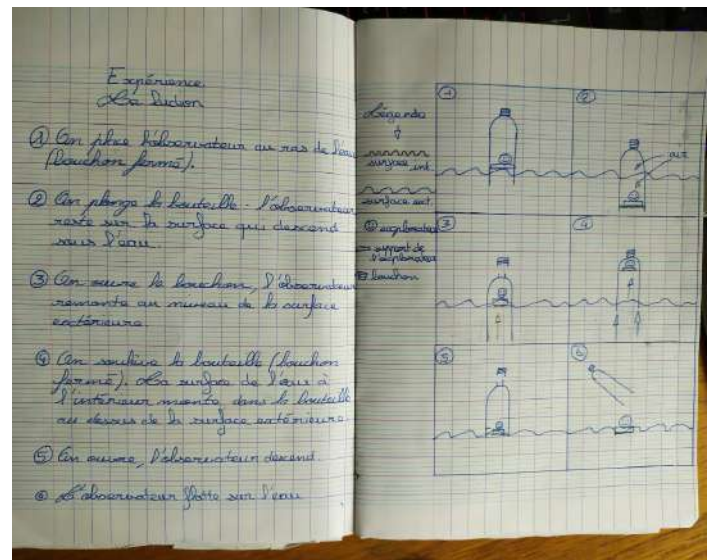 Expérience
La Ludion
① On place l'observateur au ras de l'eau
(bouchon fermé).
② On plonge la bouteille - l'observateur
reste sur la surface qui descend
sous l'eau.
③ On ouvre le bouchon, l'observateur
remonte au niveau de la surface
extérieure
④ On soulève la bouteille (bouchon
fermé). La surface de l'eau à
l'intérieur monte dans la bouteille
au dessus de la surface extérieure.
⑤ On ouvre, l'observateur descend.
⑥ L'observateur flotte sur l'eau
Légende
surface int.
surface ext.
explorateur
support de
l'explorateur
bouchon
①
②
air
③
④
⑤
⑥